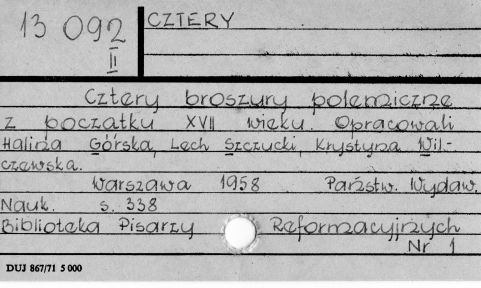 13 092
II
CZTERY
Cztery broszury polemiczne
z początku XVII wieku. Opracowali
Halina Górska, Lech Szczucki, Krystyna Wil-
czewska.
Warszawa 1958 Państw. Wydaw.
Nauk. s. 338
Biblioteka Pisarzy Reformacyjnych
Nr 1
DUJ 867/71 5 000